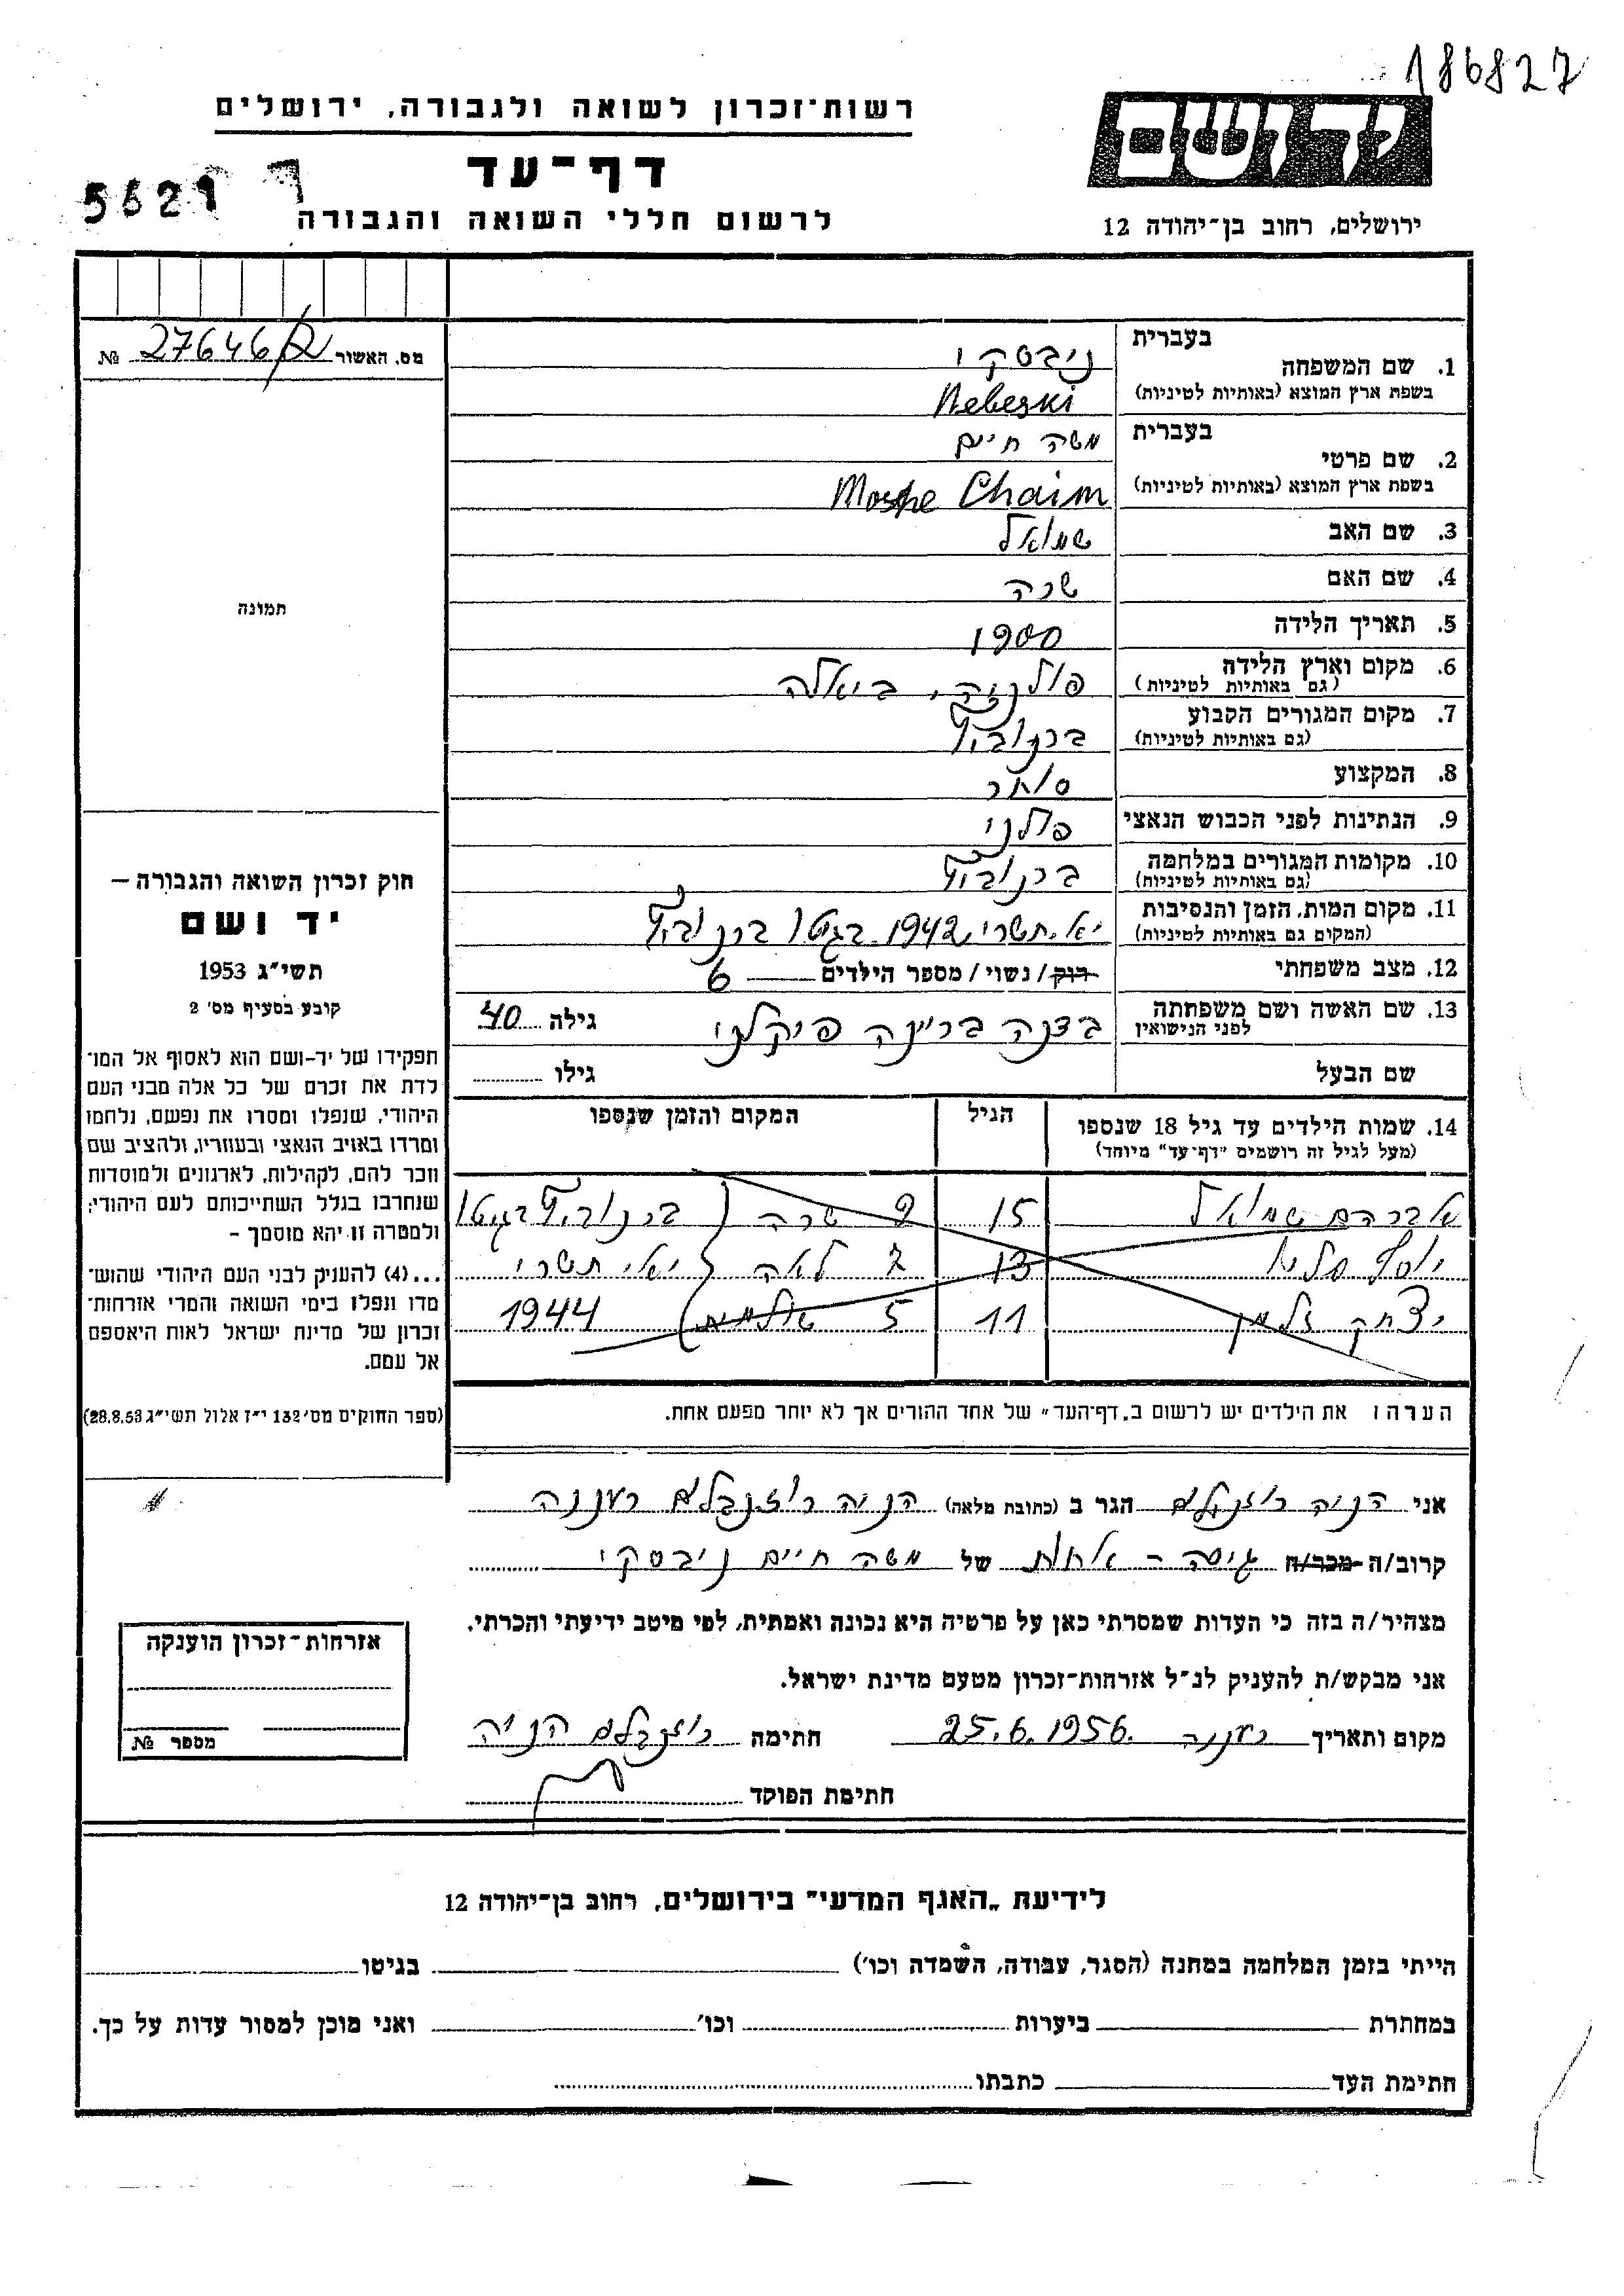 186827
רשות־זכרון לשואה ולגבורה, ירושלים
דף־עד
לרשום חללי השואה והגבורה
5621
יד ושם
ירושלים, רחוב בן־יהודה 12
מס. האשור 27646/ № 
1. שם המשפחה
בעברית ניבסקי
בשפת ארץ המוצא (באותיות לטיניות) Nebeski
2. שם פרטי
בעברית משה חיים
בשפת ארץ המוצא (באותיות לטיניות) Moshe Chaim
3. שם האב שמואל
4. שם האם שרה
5. תאריך הלידה 1900
6. מקום וארץ הלידה פולניה, ביאלה
(גם באותיות לטיניות)
7. מקום המגורים הקבוע
(גם באותיות לטיניות)
8. המקצוע סוחר
9. הנתינות לפני הכבוש הנאצי פולני
10. מקומות המגורים במלחמה
(גם באותיות לטיניות)
11. מקום המות, הזמן והנסיבות יא תשרי 1942 בגטו
(המקום גם באותיות לטיניות)
12. מצב משפחתי רווק / נשוי / מספר הילדים 6
13. שם האשה ושם משפחתה
לפני הנישואין
גילה 40
שם הבעל
גילו
14. שמות הילדים עד גיל 18 שנספו
(מעל לגיל זה רושמים "דף־עד" מיוחד)
הגיל
המקום והזמן שנספו
אברהם שמואל 15 שרה 9 בגטו
יוסף 13 לאה 7 יא' תשרי
יצחק זלמן 11 5 1944
הערה: את הילדים יש לרשום ב„דף־העד" של אחד ההורים אך לא יותר מפעם אחת.
תמונה
חוק זכרון השואה והגבורה —
יד ושם
תשי"ג 1953
קובע בסעיף מס' 2
תפקידו של יד-ושם הוא לאסוף אל המו־
לדת את זכרם של כל אלה מבני העם
היהודי, שנפלו ומסרו את נפשם, נלחמו
ומרדו באויב הנאצי ובעוזריו, ולהציב שם
וזכר להם, לקהילות, לארגונים ולמוסדות
שנחרבו בגלל השתייכותם לעם היהודי;
ולמטרה זו יהא מוסמך –
...(4) להעניק לבני העם היהודי שהוש־
מדו ונפלו בימי השואה והמרי אזרחות־
זכרון של מדינת ישראל לאות היאספם
אל עמם.
(ספר החוקים מס' 132 י"ז אלול תשי"ג 28.8.53)
אני הניה רוזנבלום הגר ב (כתובת מלאה) הניה רוזנבלום רעננה
קרוב/ה מכר/ה גיסה - אחות של משה חיים ניבסקי
מצהיר/ה בזה כי העדות שמסרתי כאן על פרטיה היא נכונה ואמתית, לפי מיטב ידיעתי והכרתי.
אני מבקש/ת להעניק לנ"ל אזרחות־זכרון מטעם מדינת ישראל.
מקום ותאריך רעננה 25.6.1956. חתימה רוזנבלום הניה
חתימת הפוקד
אזרחות־זכרון הוענקה
מספר №
לידיעת „האגף המדעי" בירושלים, רחוב בן־יהודה 12
הייתי בזמן המלחמה במחנה (הסגר, עבודה, השמדה וכו') בגיטו
במחתרת ביערות וכו' ואני מוכן למסור עדות על כך.
חתימת העד כתבתו